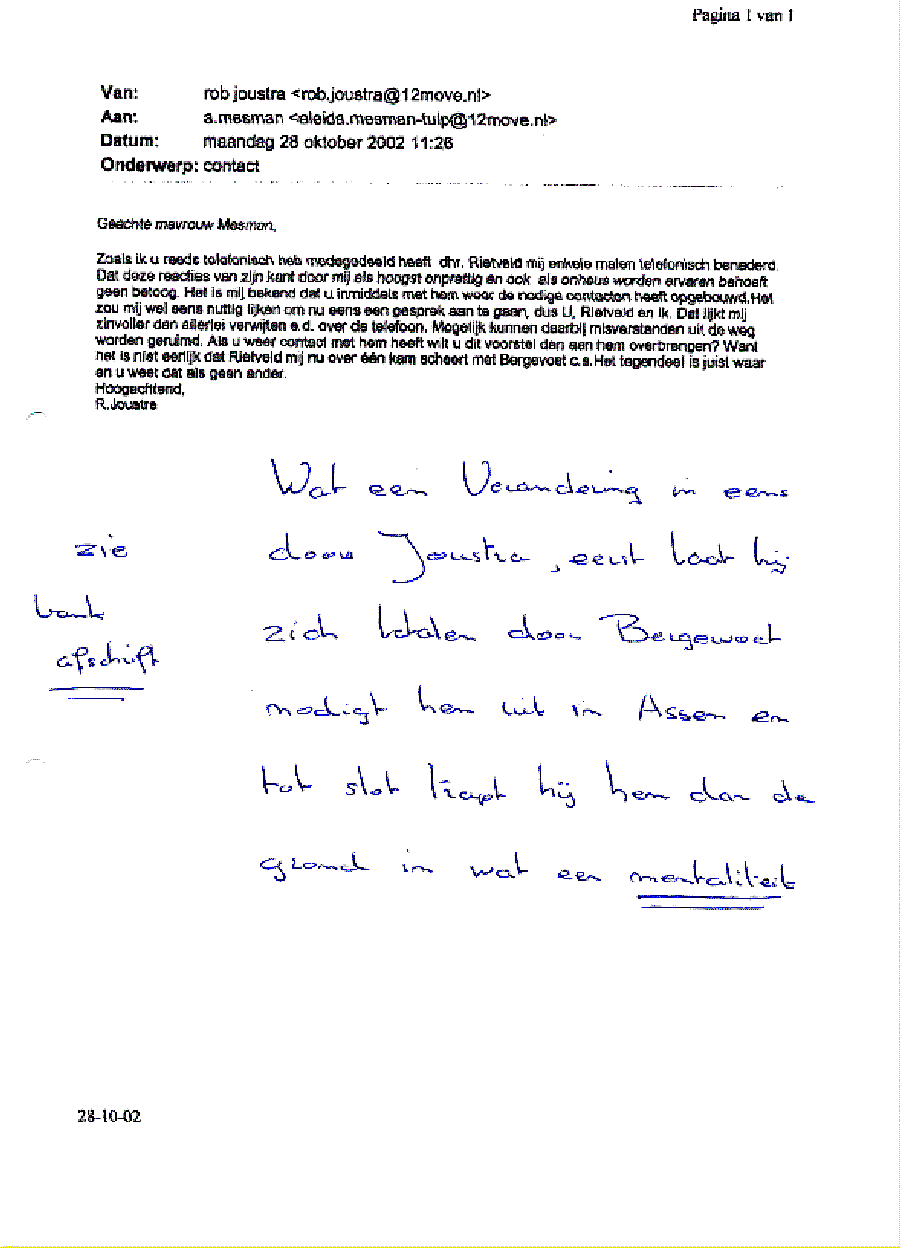 Pagina 1 van 1
Van: rob joustra <rob.joustra@12move.nl>
Aan: a.mesman <aleida.mesman-tulp@12move.nl>
Datum: maandag 28 oktober 2002 11:26
Onderwerp: contact
Geachte mevrouw Mesman,
Zoals ik u reeds telefonisch heb medegedeeld heeft dhr. Rietveld mij enkele malen telefonisch benaderd.
Dat deze reacties van zijn kant door mij als hoogst onprettig en ook als onheus worden ervaren behoeft
geen betoog. Het is mij bekend dat u inmiddels met hem weer de nodige contacten heeft opgebouwd.Het
zou mij wel eens nuttig lijken om nu eens een gesprek aan te gaan, dus U, Rietveld en ik. Dat lijkt mij
zinvoller dan allerlei verwijten e.d. over de telefoon. Mogelijk kunnen daarbij misverstanden uit de weg
worden geruimd. Als u weer contact met hem heeft wilt u dit voorstel dan aan hem overbrengen? Want
het is niet eerlijk dat Rietveld mij nu over één kam scheert met Bergevoet c.s.Het tegendeel is juist waar
en u weet dat als geen ander.
Hoogachtend,
R.Joustra
Wat een Verandering in eens
door Joustra, eerst laat hij
zich betalen door Bergevoet
nodigt hem uit in Assen en
tot slot trapt hij hem dan de
grond in wat een mentaliteit
zie
bank
afschrift
28-10-02